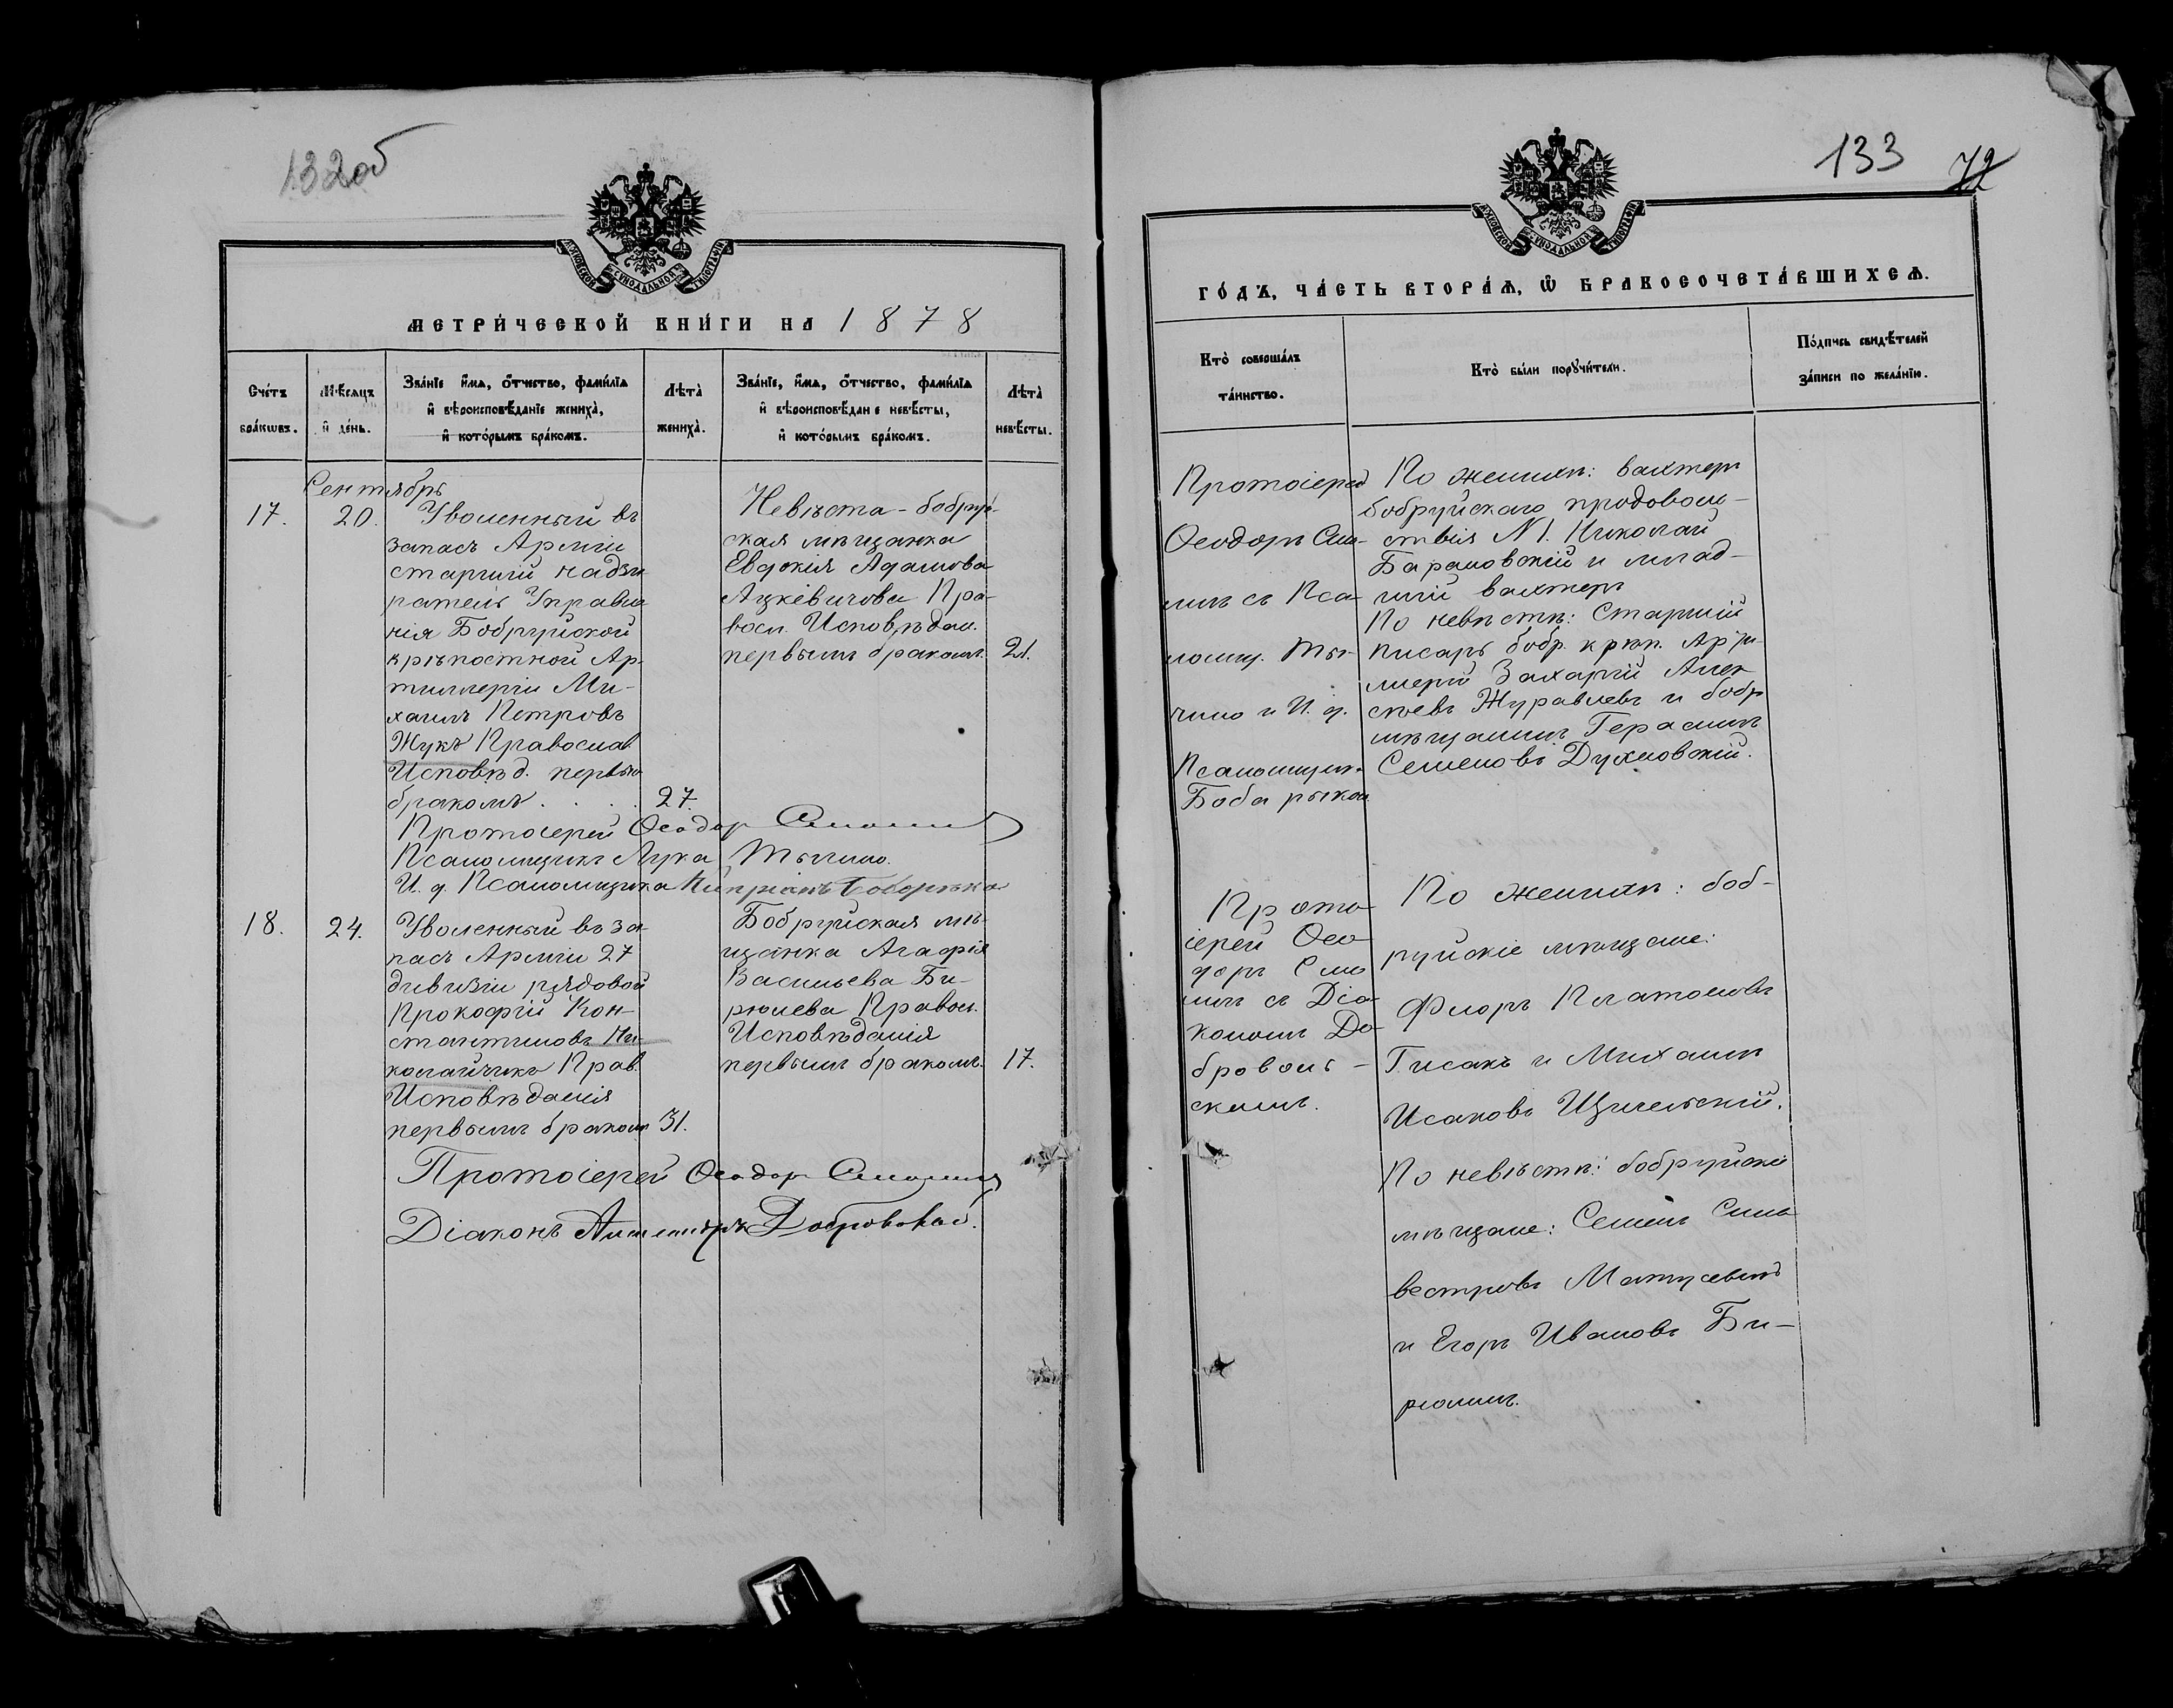 132об
МОСКОВСКОЙ СѴНОДАЛЬНОЙ ТИПОГРАФІИ
МЕТРИ́ЧЕСКОЙ КНИ́ГИ НА 1878
Сче́тъ бра́кѡвъ.
Мѣ́сяцъ и҆ де́нь.
Зва́нїе и҆́мѧ, ѻ҆́тчество, фами́лїѧ
и҆ вѣроисповѣ́данїе жениха̀,
и҆ кото́рымъ бра́комъ.
Лѣ́та жениха̀.
Зва́нїе, и҆́мѧ, ѻ҆́тчество, фами́лїѧ
и҆ вѣроисповѣ́данїе невѣ́сты,
и҆ кото́рымъ бра́комъ.
Лѣ́та невѣ́сты.
Сентябрь
17.
20.
Уволенный въ
запасъ Арміи
старшій надзи
ратель Управле
нія Бобруйской
крѣпостной Ар-
тиллеріи Ми-
хаилъ Петровъ
Жукъ Православ.
Исповѣд. первы
бракомъ . . . . 27.
Невѣста - бобруй-
ская мѣщанка
Евдокія Адамова
Ацкевичова Пра-
восл. Исповѣдан.
первымъ бракомъ. 21.
Протоіерей Ѳеодоръ
Псаломщикъ Лука Тычино.
И. д. Псаломщика Кипріанъ
18.
24.
Уволенный въ за-
пасъ Арміи 27
дивизіи рядовой
Прокофій Кон-
стантиновъ Ни-
колайчикъ Прав.
Исповѣданія
первымъ бракомъ 31.
Бобруйская мѣ-
щанка Агафія
Васильева Би-
рюлева Правосл.
Исповѣданія
первымъ бракомъ. 17.
Протоіерей Ѳеодоръ
Діаконъ Добровольс.
133
72
МОСКОВСКОЙ СѴНОДАЛЬНОЙ ТИПОГРАФІИ
ГО́ДЪ, ЧА́СТЬ ВТОРА́Ѧ, Ѽ БРАКОСОЧЕТА́ВШИХСѦ.
Кто̀ соверша́лъ
та́инство.
Кто̀ бы́ли порꙋчи́тели.
По́дпись свидѣ́телей
за́писи по жела́нїю.
Протоіерей
Ѳеодоръ Смо-
личъ съ Пса-
ломщ. Ты-
чино и И. д.
Псаломщик.
По женихѣ: вахтеръ
бобруйскаго продоволь-
ствія N1. Николай
Барановскій и млад-
шій вахтеръ
По невѣстѣ: Старшій
писарь бобр. крѣп. Арти-
лиеріи Захарій Алек
сѣевъ Журавлевъ и бобр
мѣщанинъ Герасимъ
Семеновъ Духновскій.
Прото
іерей Ѳео
доръ Смо
личъ съ Діа-
кономъ До-
броволь-
скимъ.
По женихѣ: боб-
руйскіе мѣщане:
Флоръ Платоновъ
Гисакъ и Михаилъ
Исаковъ Щигельскій.
По невѣстѣ: бобруйскіе
мѣщане: Семенъ Силь
вестровъ Матусевичъ
и Егоръ Ивановъ Би-
рюлинъ.